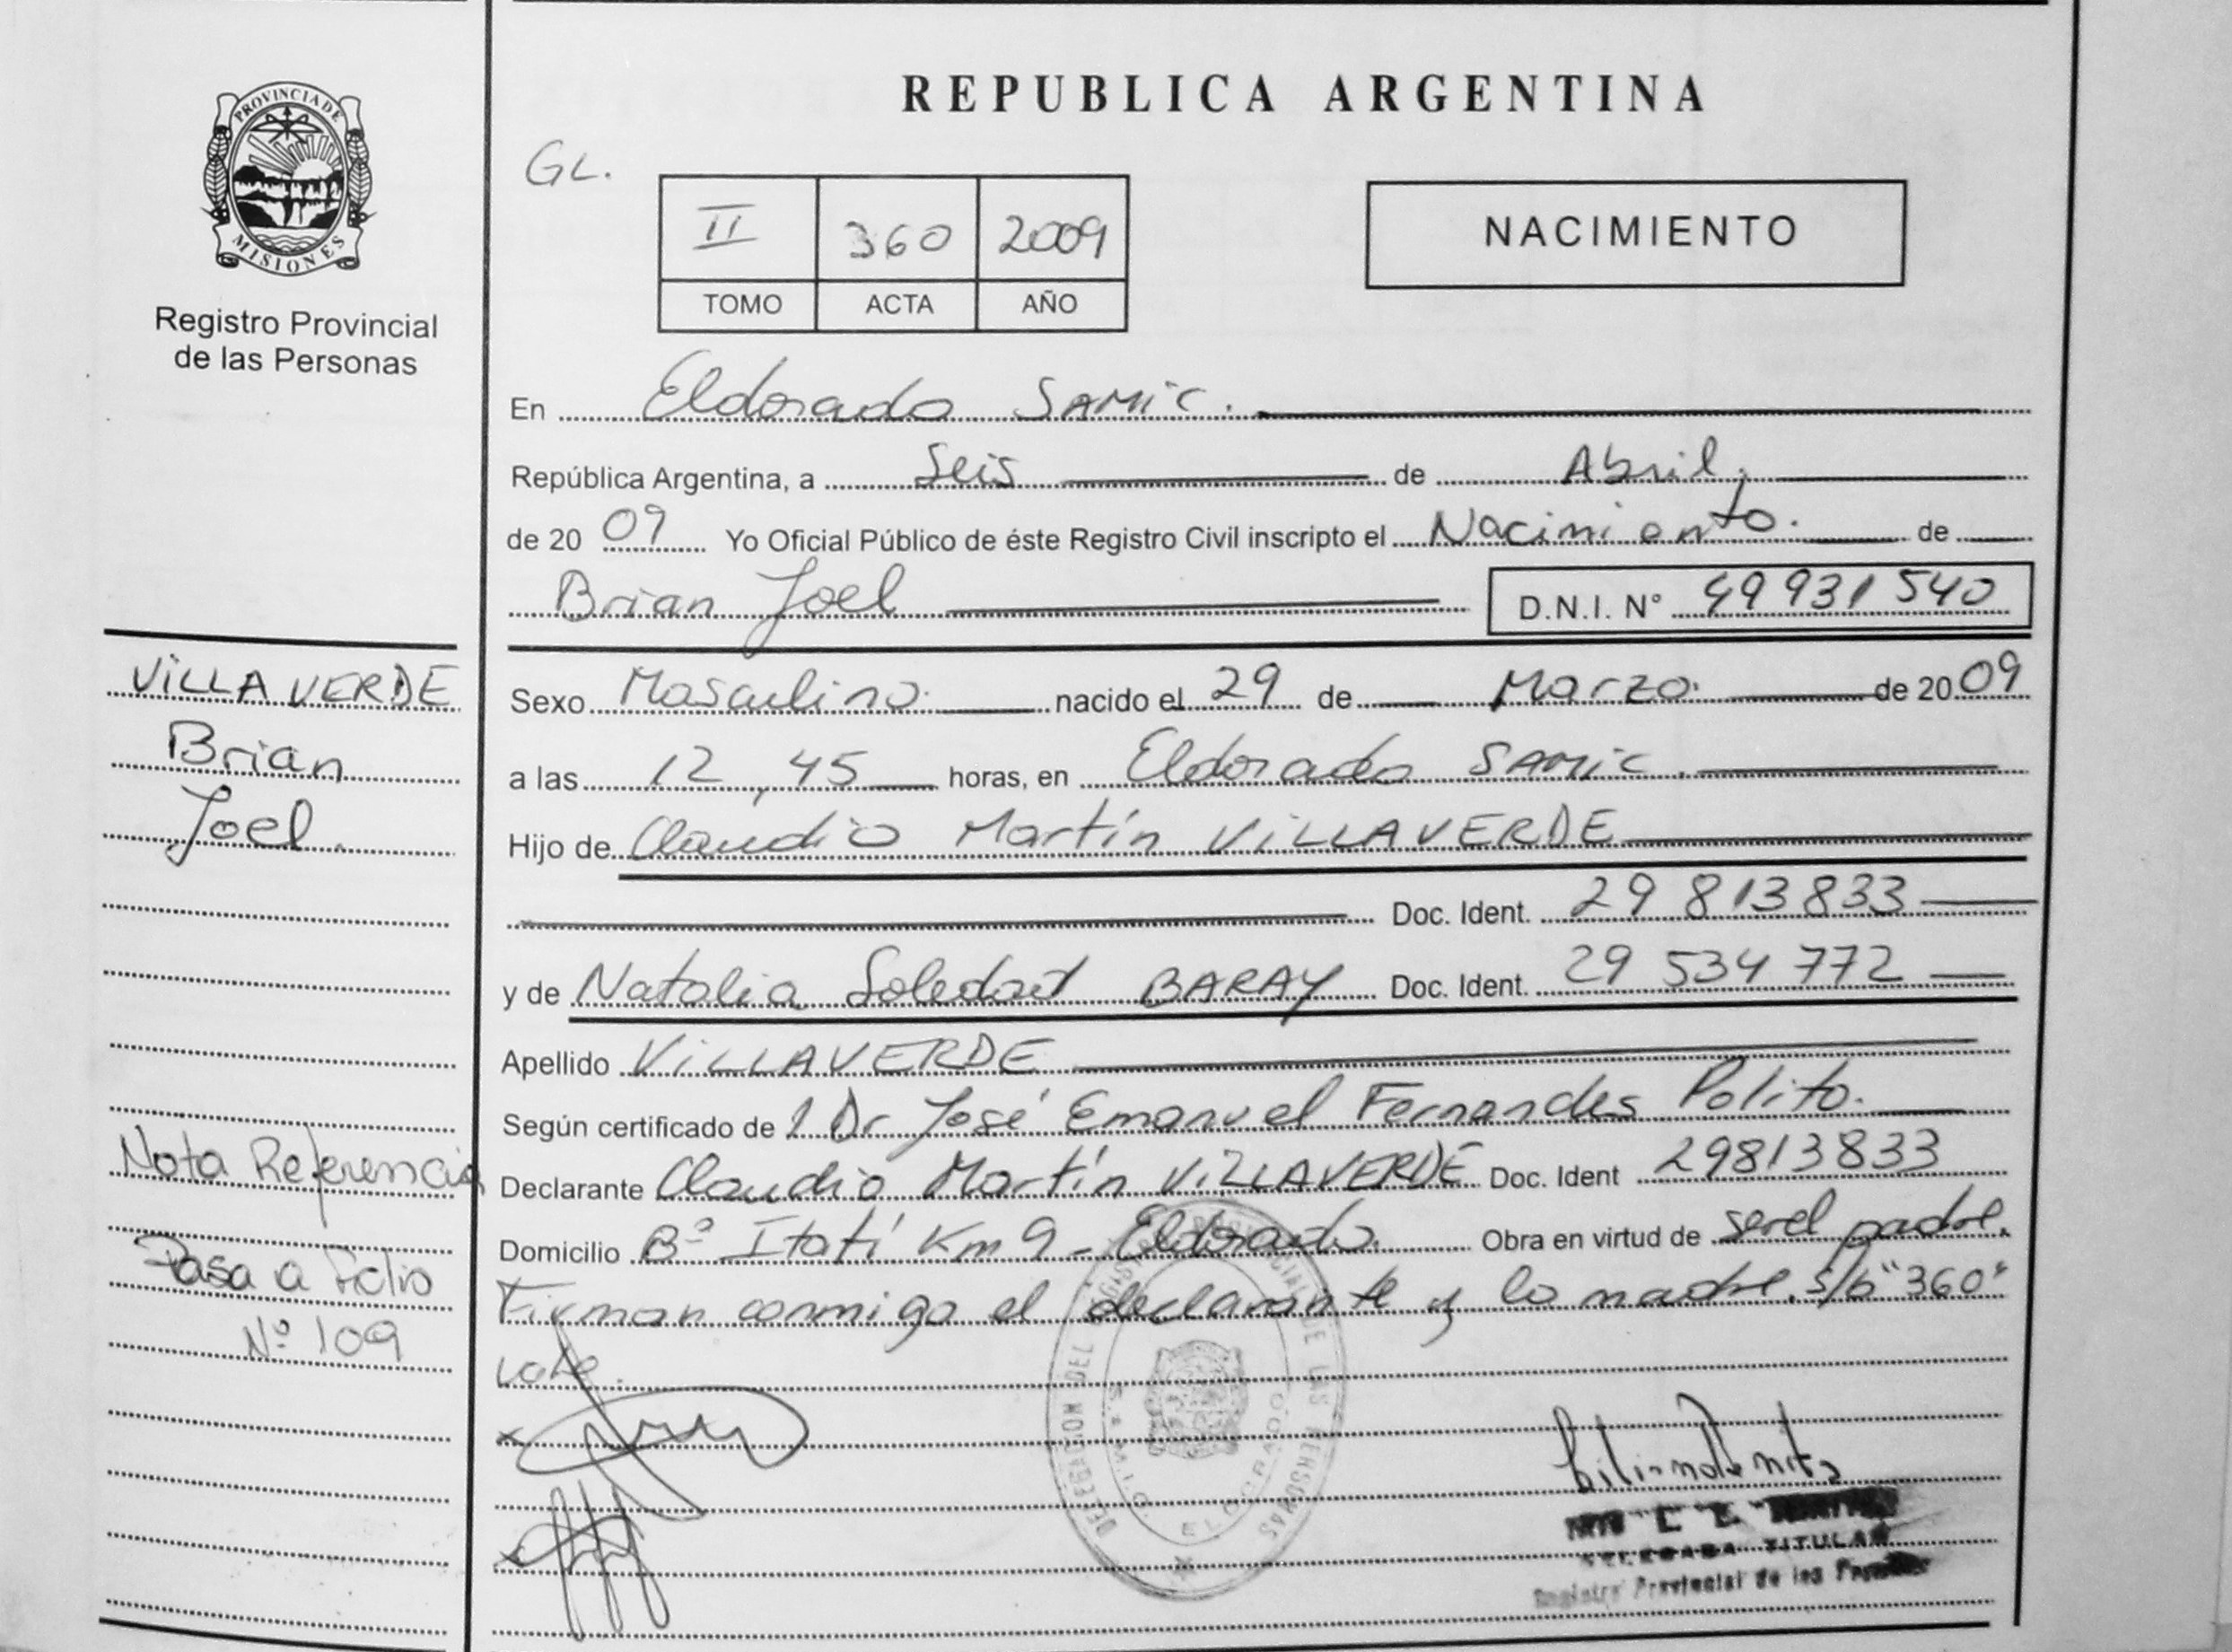 PROVINCIA DE
MISIONES
Registro Provincial
de las Personas
VILLAVERDE
Brian
Joel.
Nota Referencia
Pasa a Folio
Nº 109
REPUBLICA ARGENTINA
GL.
II 360 2009
TOMO ACTA AÑO
NACIMIENTO
En Eldorado SAMIC.
República Argentina, a Seis de Abril.
de 20 09 Yo Oficial Público de éste Registro Civil inscripto el Nacimiento. de
Brian Joel D.N.I. N° 49931540
Sexo Masculino. nacido el 29 de Marzo. de 20 09
a las 12,45 horas, en Eldorado SAMIC.
Hijo de Claudio Martín VILLAVERDE
Doc. Ident. 29 813833
y de Natalia Soledad BARAY Doc. Ident. 29 534 772
Apellido VILLAVERDE
Según certificado de l Dr José Emanuel Fernandes Polito.
Declarante Claudio Martín VILLAVERDE Doc. Ident 29813833
Domicilio Bº Itatí Km 9 - Eldorado. Obra en virtud de ser el padre.
Firman conmigo el declarante y la madre. s/b "360"
vale.
DELEGACION DEL REGISTRO PROVINCIAL DE LAS PERSONAS
ELDORADO
DELEGADA TITULAR
Registro Provincial de las Personas